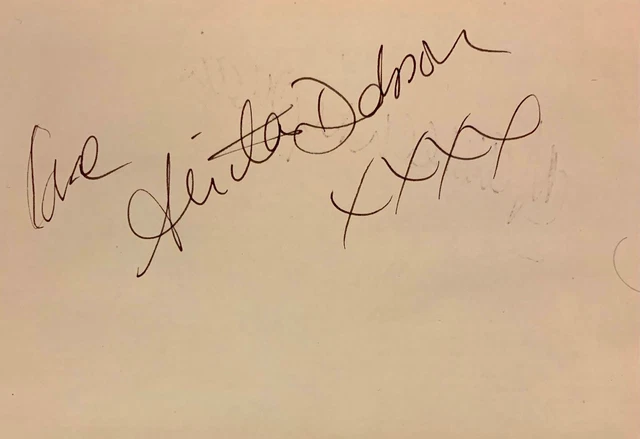 love
Anita Dobson
xxxx